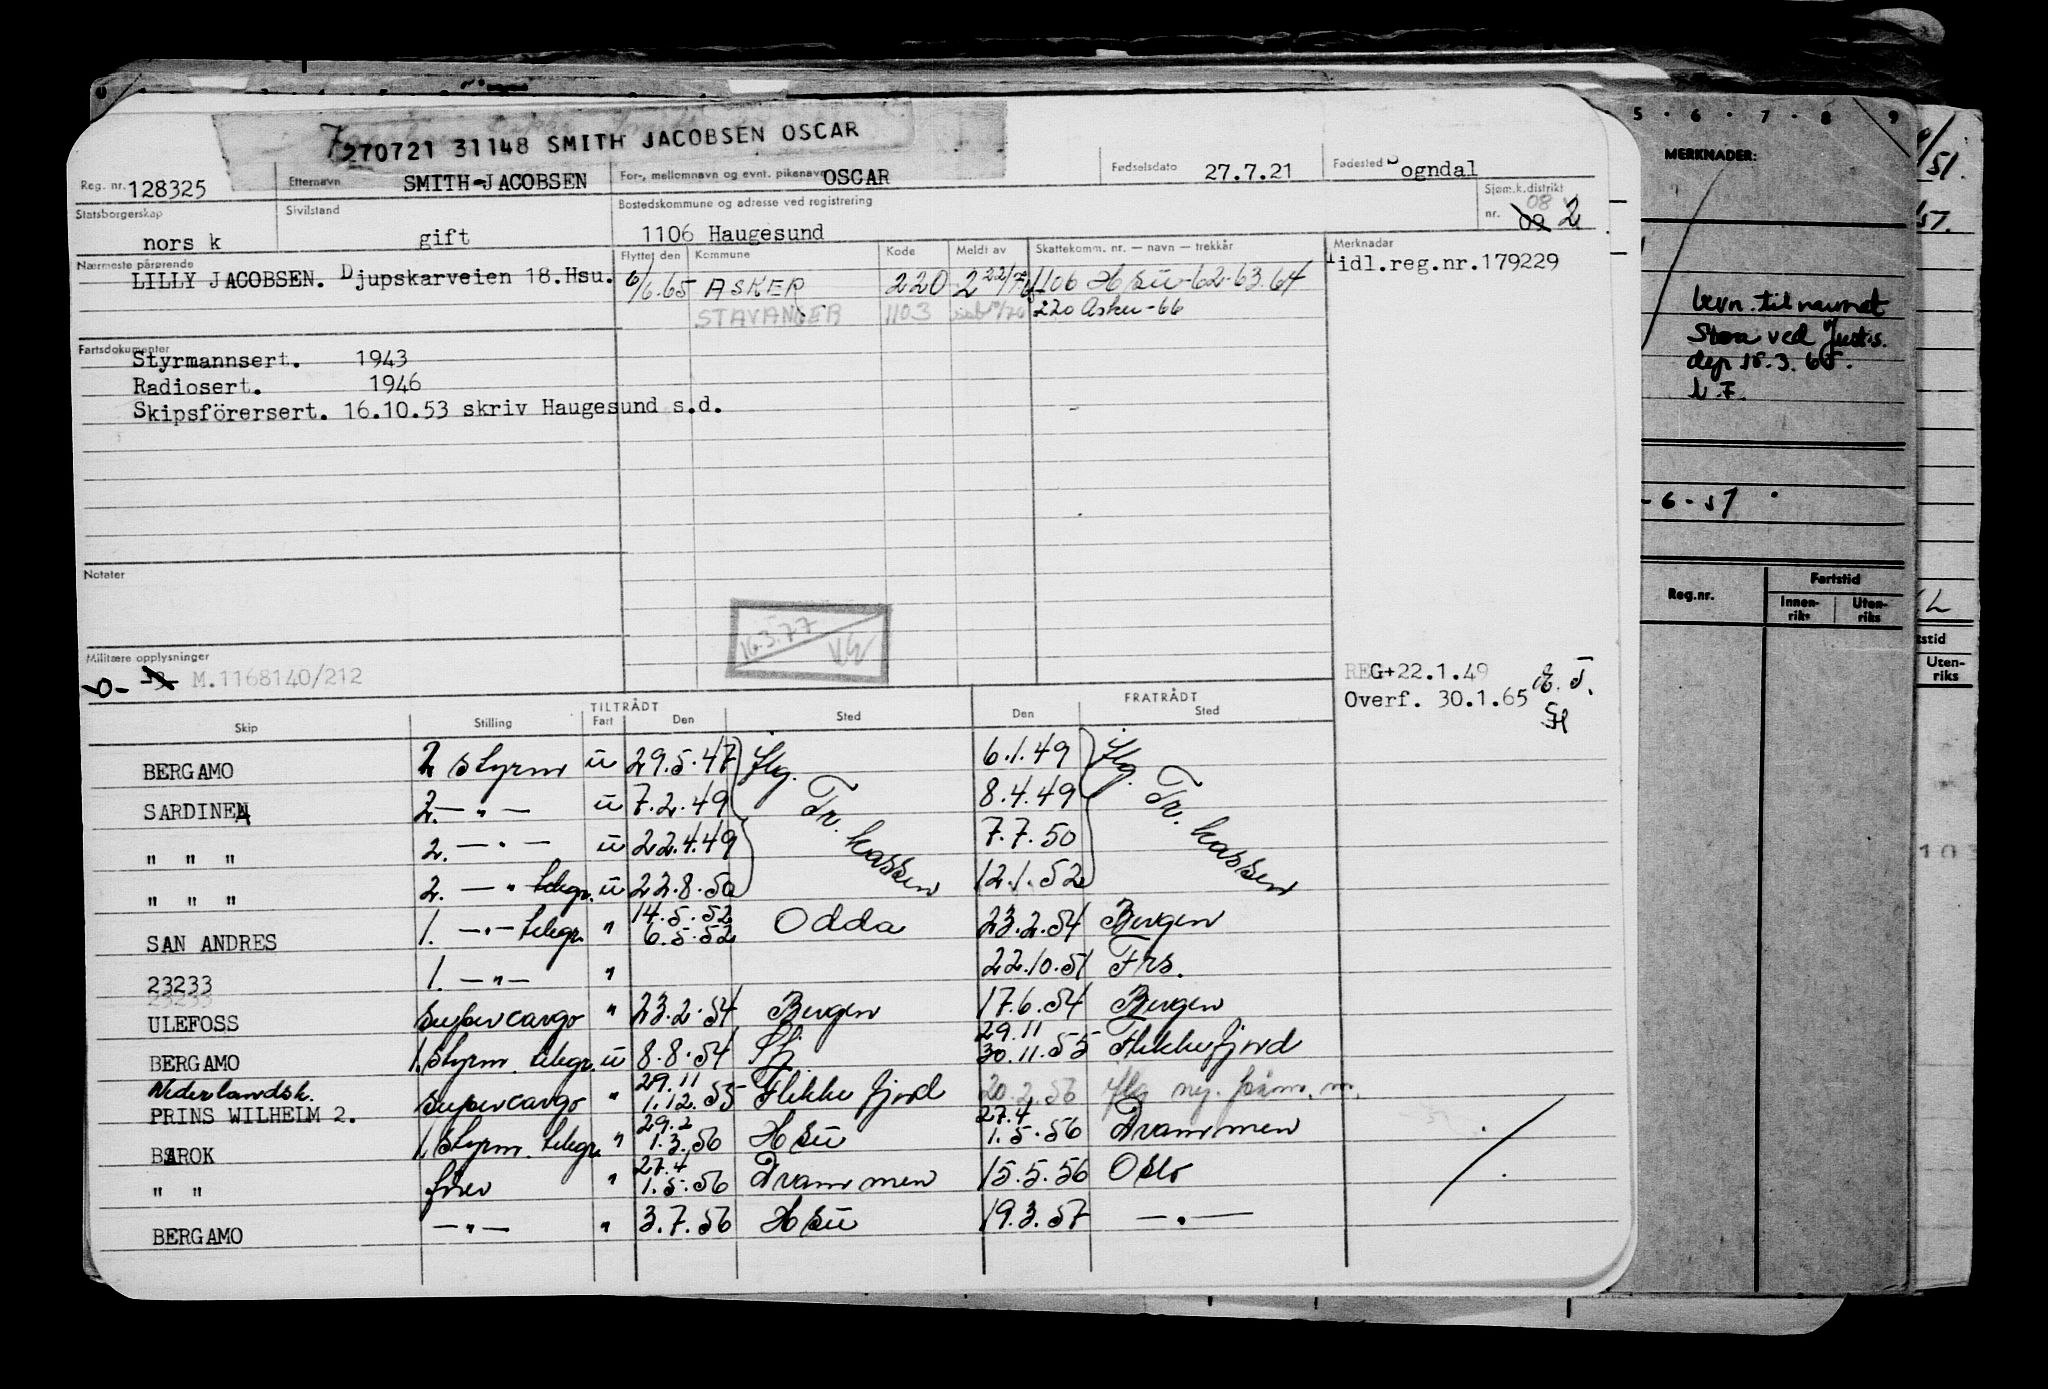 270721 31148 SMITH JACOBSEN OSCAR
Reg. nr. 128325 Etternavn SMITH-JACOBSEN For-, mellomnavn og evnt. pikenavn OSCAR Fødselsdato 27.7.21 Fødested Sogndal
Statsborgerskap norsk Sivilstand gift Bostedskommune og adresse ved registrering 1106 Haugesund Sjøm.k.distrikt nr. 08 09 2
Nærmeste pårørende Flyttet den Kommune Kode Meldt av Skattekomm. nr. — navn — trekkår Merknader
LILLY JACOBSEN. Djupskarveien 18.Hsu. 6/6.65 ASKER 220 1106 HSU-62-63.64 Tidl.reg.nr.179229
STAVANGER 1103 220 Asker-66
Fartsdokumenter
Styrmannsert. 1943
Radiosert. 1946
Skipsförersert. 16.10.53 skriv Haugesund s.d.
Notater
16.3.77
Militære opplysninger
-0- M.1168140/212
REG+22.1.49
Overf. 30.1.65
TILTRÅDT FRATRÅDT
Skip Stilling Fart Den Sted Den Sted
BERGAMO 2 styrm u 29.5.47 iflg. Tr. kassen 6.1.49 iflg. Tr. kassen
SARDINEN 2. — " — u 7.2.49 8.4.49
" " " 2. — " — u 22.4.49 7.7.50
" " " 2. — " telegr. u 22.8.50 12.1.52
SAN ANDRES 1. — " — telegr. " 14.5.52 6.5.52 Odda 23.2.54 Bergen
23233 1. — " — " 22.10.51 Frs.
ULEFOSS supercargo " 23.2.54 Bergen 17.6.54 Bergen
BERGAMO 1. styrm. telegr. u 8.8.54 Sfj 29.11 30.11.55 Flekkefjord
Nederlandsk.
PRINS WILHELM 2. supercargo " 29.11 1.12.55 Flekkefjord 20.2.56
BAROK 1. styrm. telegr. " 29.2 1.3.56 HSU 27.4 1.5.56 Drammen
" " förer " 27.4 1.5.56 Drammen 15.5.56 Oslo
BERGAMO — " — " 3.7.56 HSU 19.3.57 — " —
5 · 6 · 7 · 8 · 9
MERKNADER:
bevn. til navnet
ved Justis.
dep 15.3.65.
-6-51
Reg.nr. Fartstid
Innenriks Utenriks
51.
Utenriks